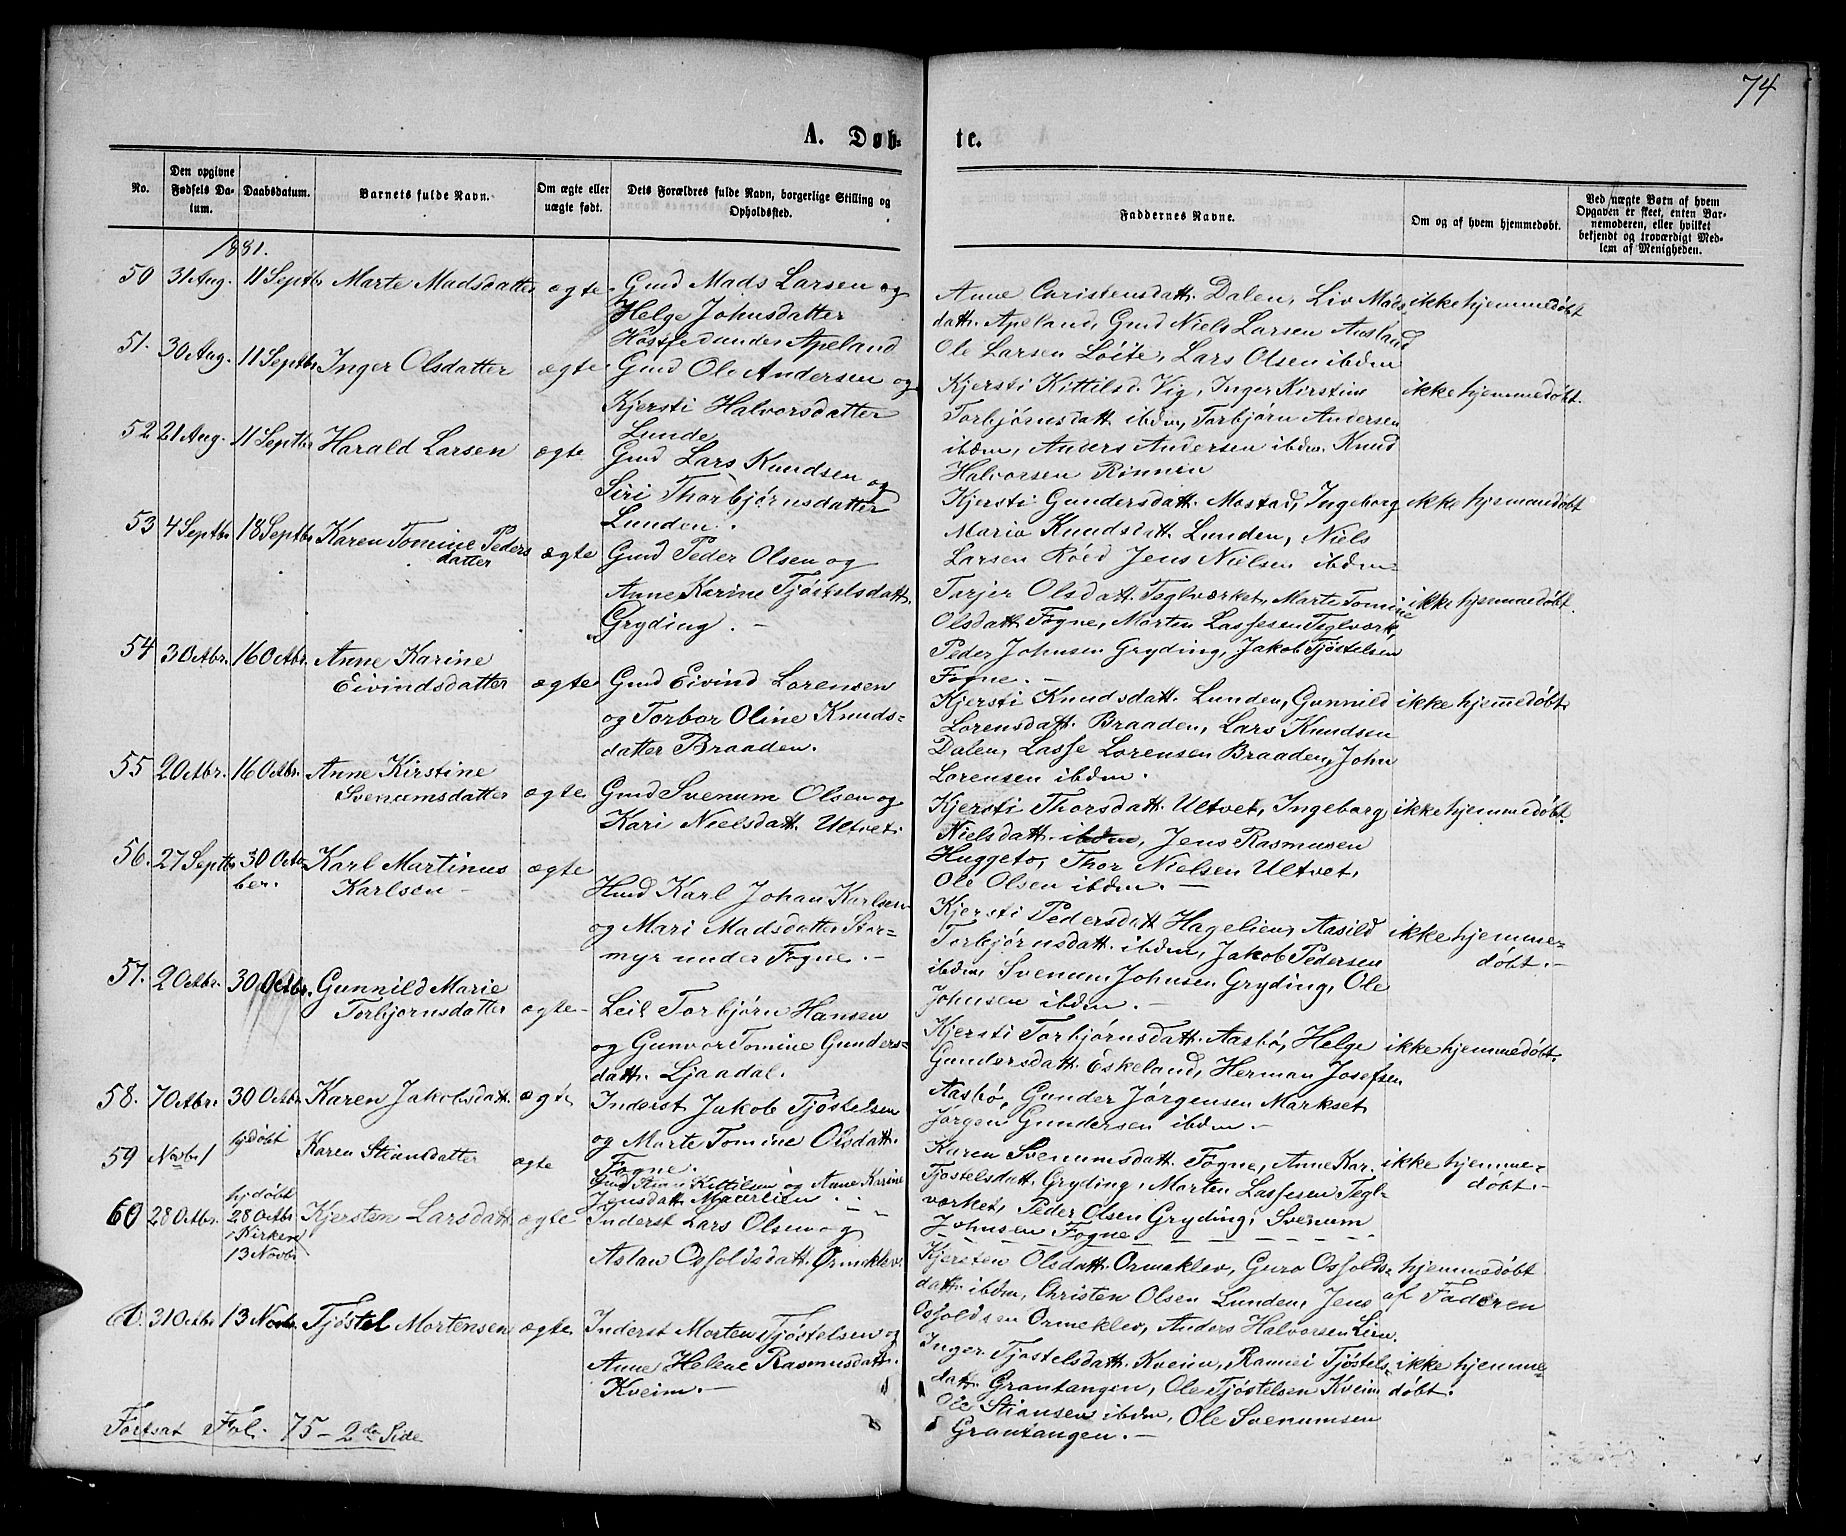 74
A. Døb-
te.
No.
Den opgivne
Fødsels Da-
tum.
Daabsdatum.
Barnets fulde Navn.
Om ægte eller
uægte født.
Dets Forældres fulde Navn, borgerlige Stilling og
Opholdssted.
Faddernes Navne.
Om og af hvem hjemmedøbt.
Ved uægte Børn af hvem
Opgaven er skeet, enten Bar-
nemoderen, eller hvilket
bekjendt og troværdigt Med-
lem af Menigheden.
1881.
50 31 Aug. 11 Septbr Marte Madsdatter ægte
Gmd Mads Larsen og
Helge Johnsdatter
under Apeland
Anne Christensdatt. Dalen, Liv Mads
datt. Apeland, Gmd Niels Larsen Ausland
Ole Larsen Løite, Lars Olsen ibdm
ikke hjemmedøbt
51. 30 Aug. 11 Septbr Inger Olsdatter ægte
Gmd Ole Andersen og
Kjersti Halvorsdatter
Lunde
Kjersti Kittilsd. Vig, Inger Kirstine
Torbjørnsdatt ibdm, Torbjørn Andersen
ibdm, Anders Andersen ibdm. Knud
Halvorsen Rønnen
ikke hjemmedøbt.
52 21 Aug. 11 Septbr Harald Larsen ægte
Gmd Lars Knudsen og
Siri Thorbjørnsdatter
Lunden.
Kjersti Gundersdatt. Mostad, Ingeborg
Maria Knudsdatt Lunden, Niels
Larsen Røed Jens Nielsen ibdm
ikke hjemmedøbt
53 4 Septbr 18 Septbr Karen Tomine Peders
datter ægte
Gmd Peder Olsen og
Anne Karine Tjøstelsdatt.
Gryding. —
Torjer Olsdatt. Teglværket, Marte Tomine
Olsdatt Fogne, Morten Lassesen Teglværk,
Peder Johnsen Gryding, Jakob Tjøstelsen
Fogne. —
ikke hjemmedøbt.
54 3 Octbr. 16 Octbr. Anne Karine
Eivindsdatter ægte
Gmd Eivind Lorensen
og Torbor Oline Knuds-
datter Braaden.
Kjersti Knudsdatt. Lunden, Gunnild
Lorensdatt. Braaden, Lars Knudsen
Dalen, Lasse Lorensen Braaden, John
Lorensen ibdm.
ikke hjemmedøbt
55 2 Octbr. 16 Octbr. Anne Kirstine
Svenumsdatter ægte
Gmd Svenum Olsen og
Kari Nielsdatt. Ultvet
Kjersti Thorsdatt. Ultvet, Ingeborg
Nielsdatt. ibdm, Jens Rasmusen
Huggeto, Thor Nielsen Ultvet,
Ole Olsen ibdm. —
ikke hjemmedøbt.
56. 27 Septbr 30 Octo
ber. Karl Martinus
Karlsen — ægte
Hmd Karl Johan Karlsen
og Mari Madsdatter Stor-
myr under Fogne. —
Kjersti Pedersdatt Hagelien, Aasild
Torbjørnsdatt. ibdm, Jakob Pedersen
ibdm, Svenum Johnsen Gryding, Ole
Johnsen ibdm. —
ikke hjemme-
døbt. —
57. 2 Octbr. 30 Octbr. Gunnild Marie
Torbjørnsdatter ægte —
Leil Torbjørn Hansen
og Gunvor Tomine Gunders-
datt. Ljaadal.
Kjersti Torbjørnsdatt. Aasbø, Helge
Gundersdatt. Eskeland, Herman Josefsen
Aasbø, Gunder Jørgensen Markset
Jørgen Gundersen ibdm. —
ikke hjemmedøbt.
58. 7 Octbr. 30 Octbr. Karen Jakobsdatt. ægte
Inderst Jakob Tjøstelsen
og Marte Tomine Olsdatt.
Fogne.
Karen Svenumsdatt. Fogne, Anne Kar.
Tjøstelsdatt. Gryding, Morten Lassesen Tegl-
værket, Peder Olsen Gryding, Svenum
Johnsen Fogne
ikke hjemme-
døbt. —
59 Novbr 1 hjdøbt Karen Stiansdatter ægte
Gmd Stian Kittilsen og Anne Karine
Jensdatt.
60 28 Octbr. hjdøbt
28 Octbr
i Kirken
13 Novbr Kjersten Larsdatt ægte
Inderst Lars Olsen og
Aslau Osfoldsdatt. Ormeklev.
Kjersten Olsdatt. Ormeklev, Guro Osfolds-
datt. ibdm, Christen Olsen Lunden, Jens
Osfoldsen Ormeklev, Anders Halvorsen Lien.
hjemmedøbt
af Faderen
61. 31 Octbr 13 Novbr. Tjøstel Mortensen ægte
Inderst Morten Tjøstelsen og
Anne Helene Rasmusdatt.
Kveim. —
Inger Tjøstelsdatt. Kveim, Ramnei Tjøstels-
datt. Grantangen, Ole Tjøstelsen Kveim
Ole Stiansen ibdm, Ole Svenumsen
Grantangen. —
ikke hjemme-
døbt.
Fortsat Fol. 75 — 2de Side